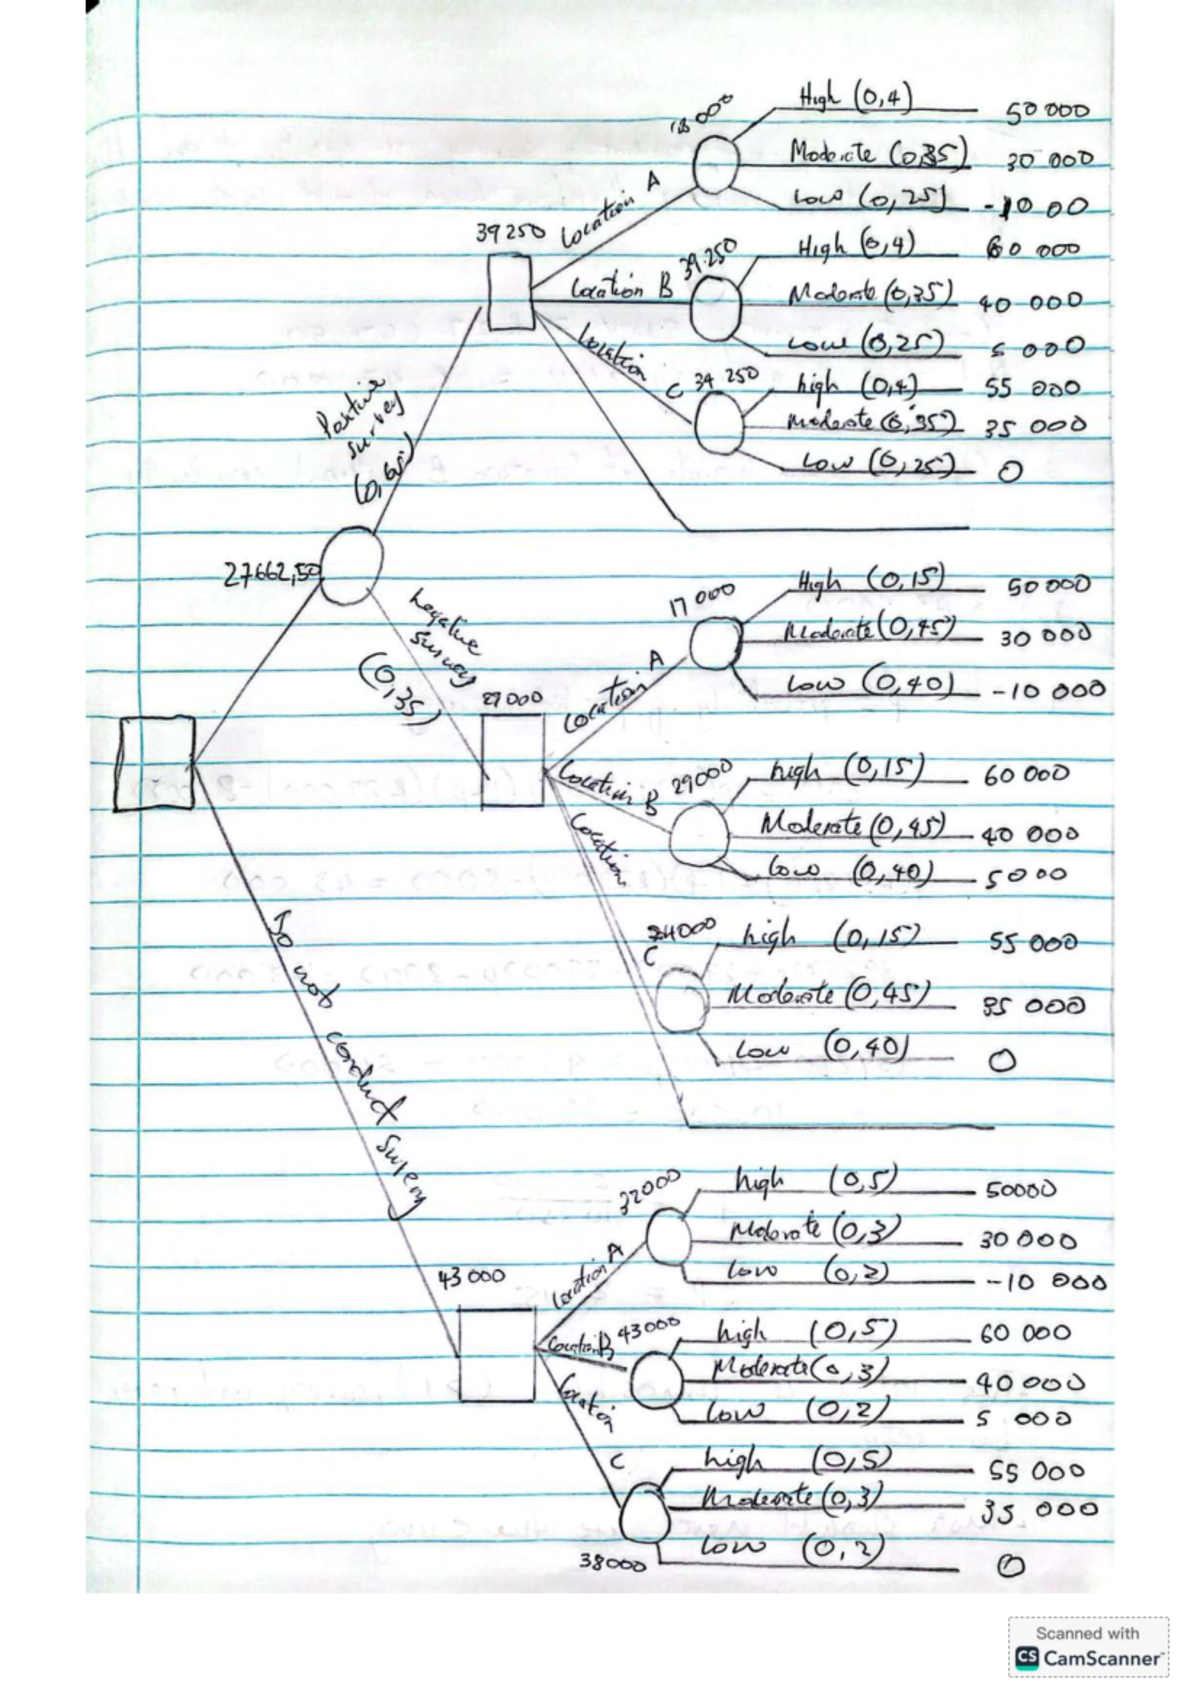 High (0,4) 50 000
18000
Moderate (0,35) 30 000
Location A
Low (0,25) -10 00
39250
High (0,4) 60 000
39.250
Location B
Moderate (0,35) 40 000
Low (0,25) 5 000
Location C
34 250
high (0,4) 55 000
Moderate (0,35) 35 000
Low (0,25) 0
Positive survey (0,65)
27662,50
High (0,15) 50 000
17 000
Moderate (0,45) 30 000
Location A
Low (0,40) -10 000
Negative survey (0,35)
29000
high (0,15) 60 000
Location B
29000
Moderate (0,45) 40 000
Low (0,40) 5000
Location C
24000
high (0,15) 55 000
Moderate (0,45) 35 000
Low (0,40) 0
not conduct
high (0,5) 50000
32000
Moderate (0,3) 30 000
Location A
Low (0,2) -10 000
43 000
high (0,5) 60 000
Location B
43000
Moderate (0,3) 40 000
Low (0,2) 5 000
Location C
high (0,5) 55 000
Moderate (0,3) 35 000
Low (0,2) 0
38000
Scanned with
CS CamScanner